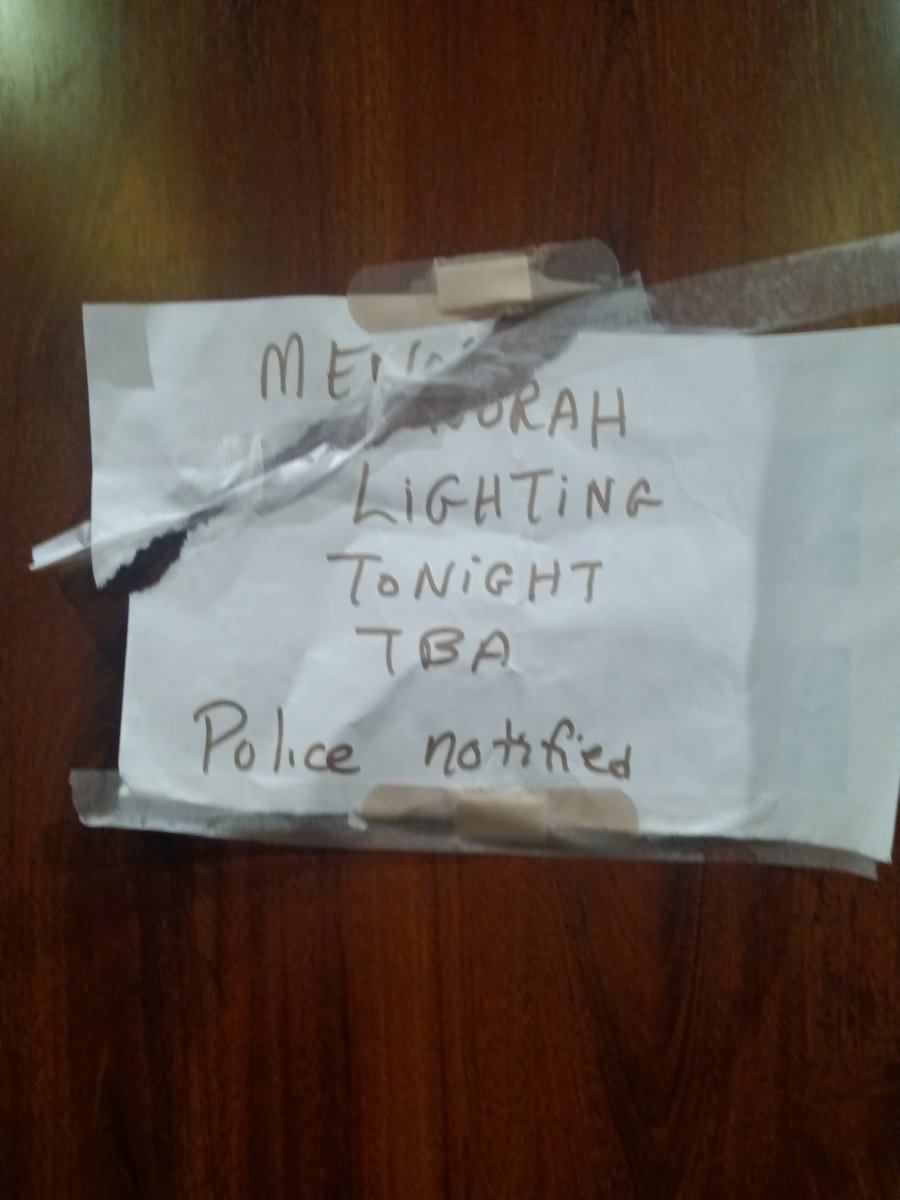 MENORAH
LiGHTiNG
ToNiGHT
TBA
Police notified